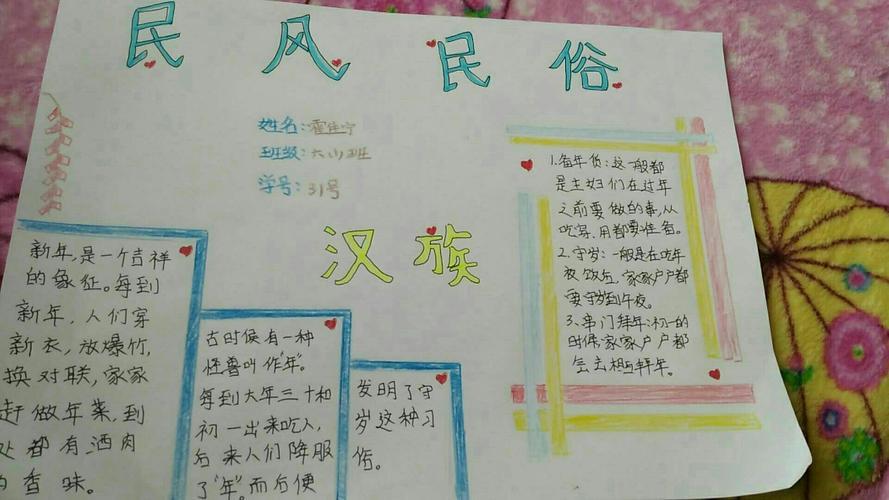 民风民俗
姓名:霍佳宁
班级:六(1)班
学号:31号
汉族
新年,是一个吉祥
的象征。每到
新年,人们穿
新衣,放爆竹,
换对联,家家
赶做年菜,到
处都有酒肉
的香味。
古时候有一种
怪兽叫作"年"。
每到大年三十和
初一出来吃人,
后来人们降服
了"年"。而后便
发明了守
岁这种习
俗。
1.备年货:这一般都
是主妇们在过年
之前要做的事,从
吃穿、用都要准备。
2.守岁:一般是在吃年
夜饭后,家家户户都
要守岁到午夜。
3、串门拜年:初一的
时候,家家户户都
会去相与拜年。